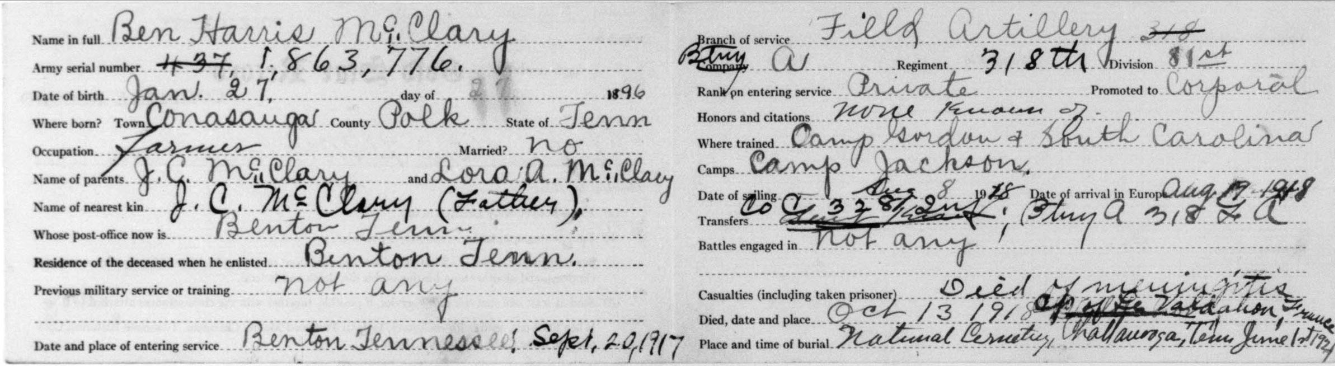 Name in full Ben Harris McClary
Army serial number 437, 1,863,776.
Date of birth Jan. 27, day of 27 1896
Where born? Town Conasauga County Polk State of Tenn
Occupation Farmer Married? no
Name of parents J. C. McClary and Lora A. McClary
Name of nearest kin J. C. McClary (Father),
Whose post-office now is Benton Tenn.
Residence of the deceased when he enlisted Benton Tenn.
Previous military service or training not any
Date and place of entering service Benton Tennessee! Sept, 20, 1917
Branch of service Field Artillery 318
Company Btry A Regiment 318th Division 81st
Rank on entering service Private Promoted to Corporal
Honors and citations none known of.
Where trained Camp Gordon & South Carolina
Camps Camp Jackson.
Date of sailing Aug 8 1918 Date of arrival in Europe Aug 19 1918
Transfers Co C, 328 Inf; Btry A 318 F A
Battles engaged in not any
Casualties (including taken prisoner) Died of meningitis
Died, date and place Oct 13 1918 France
Place and time of burial National Cemetery, Chattanooga, Tenn June 1st 1921